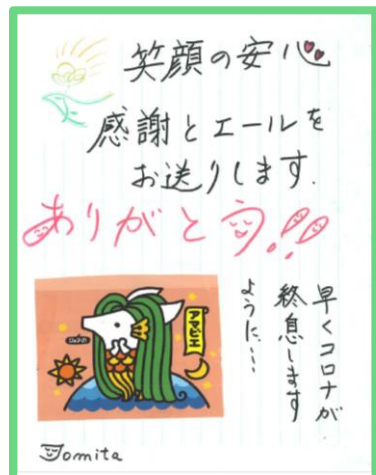 笑顔の安心
感謝とエールを
お送りします.
ありがとう!!
早くコロナが
終息します
ように…
アマビエ
Tomita